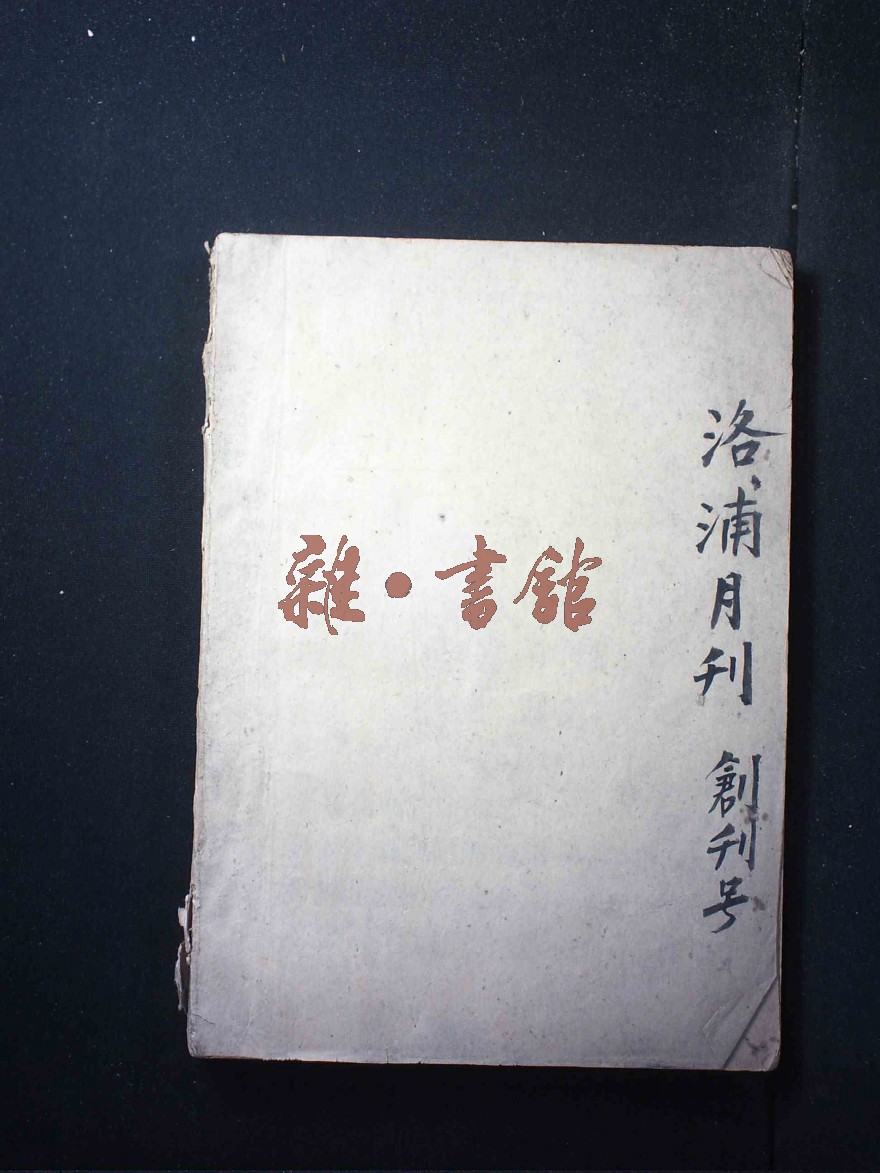 洛浦月刊 創刊号
雜·書館